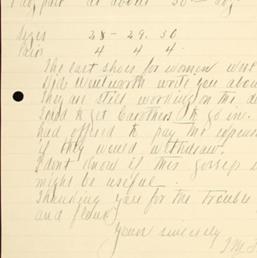 pair at about 50
Sizes 28 - 29. 30
Pair 4 4 4.
The last shoes for women were
Did Wentworth write you about
They are still working on the
to get Carothers to go in.
had offered to pay the expense
if they would withdraw.
I dont know if this gossip
might be useful.
Thanking you for the trouble
and
Yours sincerely